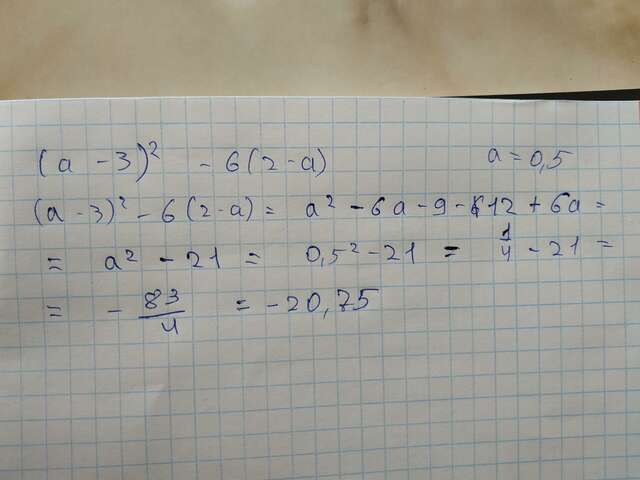 (a - 3)² - 6(2-a) a = 0,5
(a - 3)² - 6(2-a) = a² - 6a - 9 - 12 + 6a =
= a² - 21 = 0,5² - 21 = 1/4 - 21 =
= - 83/4 = -20,75